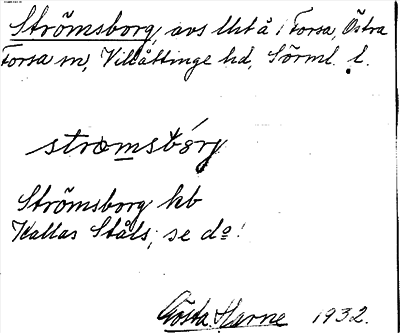 Strömsborg, avs Uttå i Forsa, Östra
Forsa sn, Villåttinge hd, Sörml. l.
stromsbórg
Strömsborg kb
Kallas Ståls, se do!
Gösta Harne 1932.